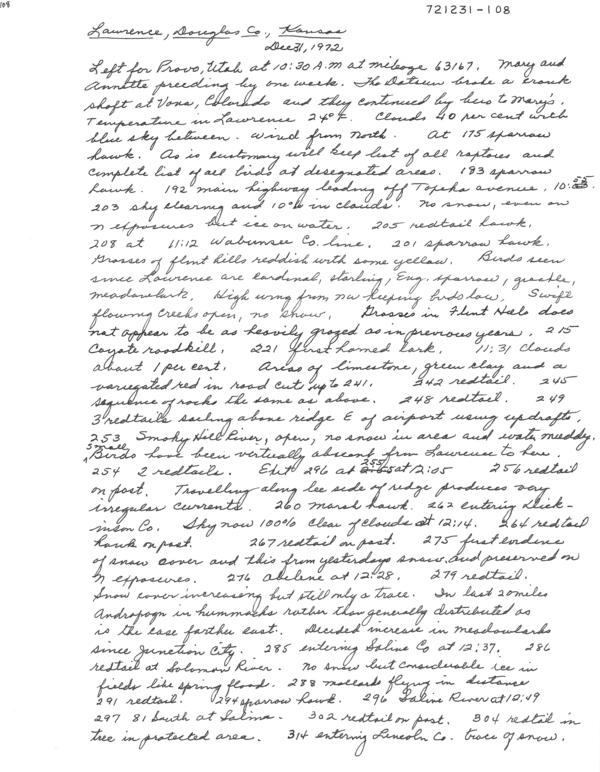 108
721231-108
Lawrence, Douglas Co., Kansas
Dec 31, 1972
Left for Provo, Utah at 10:30 A.M at mileage 63167. Mary and
Annette preceding by one week. The Datsun broke a crank
shaft at Vona, Colorado and they continued by bus to Mary's.
Temperature in Lawrence 24°F. Clouds 40 per cent with
blue sky between. Wind from North. At 175 sparrow
hawk. As is customary will keep list of all raptores and
complete list of all birds at designated areas. 183 sparrow
hawk. 192 main highway leading off Topeka avenue, 10:55.
203 sky clearing and 10% in clouds. No snow, even on
n exposures but ice on water. 205 redtail hawk.
208 at 11:12 Wabunsee Co. line. 201 sparrow hawk.
Grasses of flint hills reddish with some yellow. Birds seen
since Lawrence are cardinal, starling, Eng. sparrow, grackle,
meadowlark. High wing from nw keeping birds low. Swift
flowing creeks open, no snow. Grasses in Flint Hills does
not appear to be as heavily grazed as in previous years. 215
Coyote roadkill. 221 first horned lark. 11:31 Clouds
about 1 per cent. Areas of limestone, green clay and a
variegated red in road cut up to 241. 242 redtail. 245
sequence of rocks the same as above. 248 redtail. 249
3 redtails sailing above ridge E of airport using updrafts.
253 Smoky Hill River, open, no snow in area and water muddy.
Small Birds have been vertually abscent from Lawrence to here.
254 2 redtails. Exit 296 at 255 at 12:05 256 redtail
on post. Travelling along lee side of ridge produces very
irregular currents. 260 marsh hawk. 262 entering Dick-
inson Co. Sky now 100% clear of clouds at 12:14. 264 redtail
hawk on post. 267 redtail on post. 275 first evidence
of snow cover and this from yesterdays snow and preserved on
n exposures. 276 Abilene at 12:28. 279 redtail.
Snow cover increasing but still only a trace. In last 20 miles
Andropogn in hummocks rather than generally distributed as
is the case farther east. Decided increase in meadowlarks
since Junction City. 285 entering Saline Co at 12:37. 286
redtail at Solomon River. No snow but considerable ice in
fields like spring flood. 288 mallards flying in distance
291 redtail. 294 sparrow hawk. 296 Saline River at 12:49
297 81 South at Salina. 302 redtail on post. 304 redtail in
tree in protected area. 314 entering Lincoln Co. trace of snow.